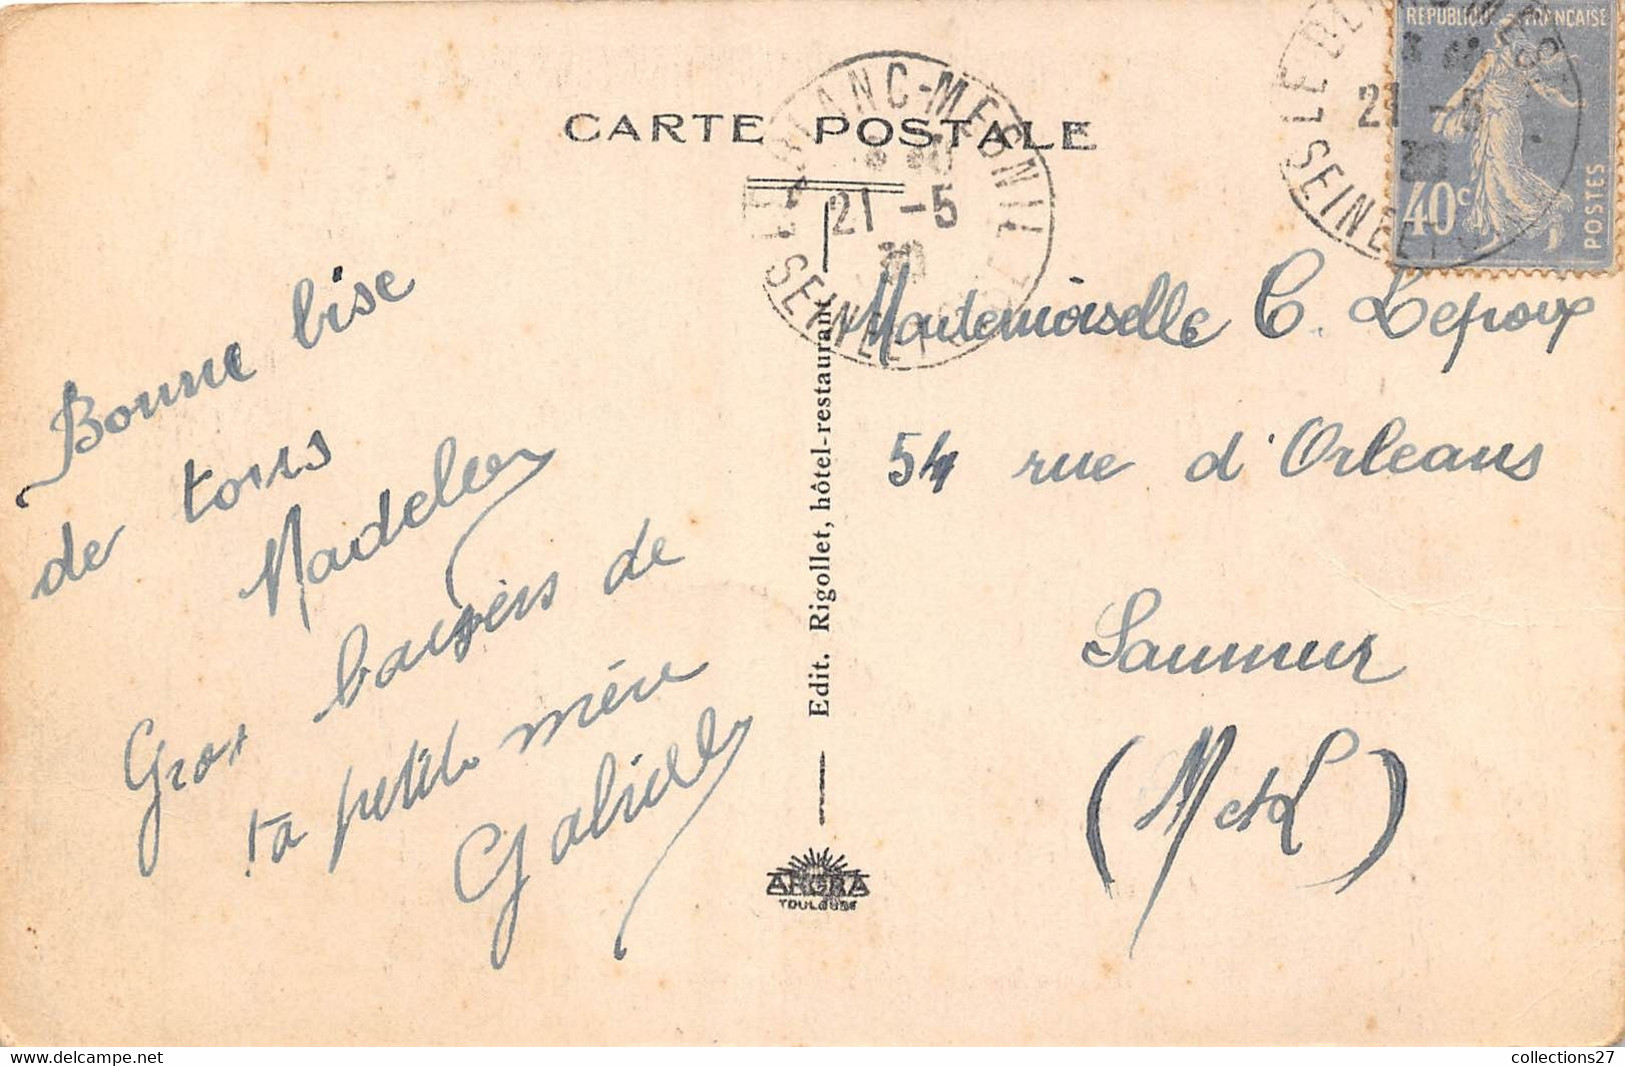 CARTE POSTALE
LE BLANC-MESNIL
21 -5
30
SEINE ET OISE
REPUBLIQUE FRANCAISE
21 -5
30
40c
POSTES
Bonne bise
de tous
Madelen
Gros baisers de
ta petite mère
Gabrielle
Edit. Rigollet, hôtel-restaurant
ARGRA
TOULOUSE
Mademoiselle C. Leproux
54 rue d'Orleans
Saumur
(M et L)
collections27